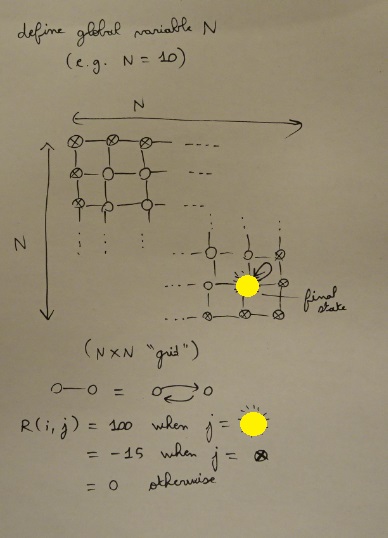 define global variable N
(e.g. N = 10)
N
N
final
state
(N×N "grid")
=
R(i,j) = 100 when j =
= -15 when j = ⊗
= 0 otherwise